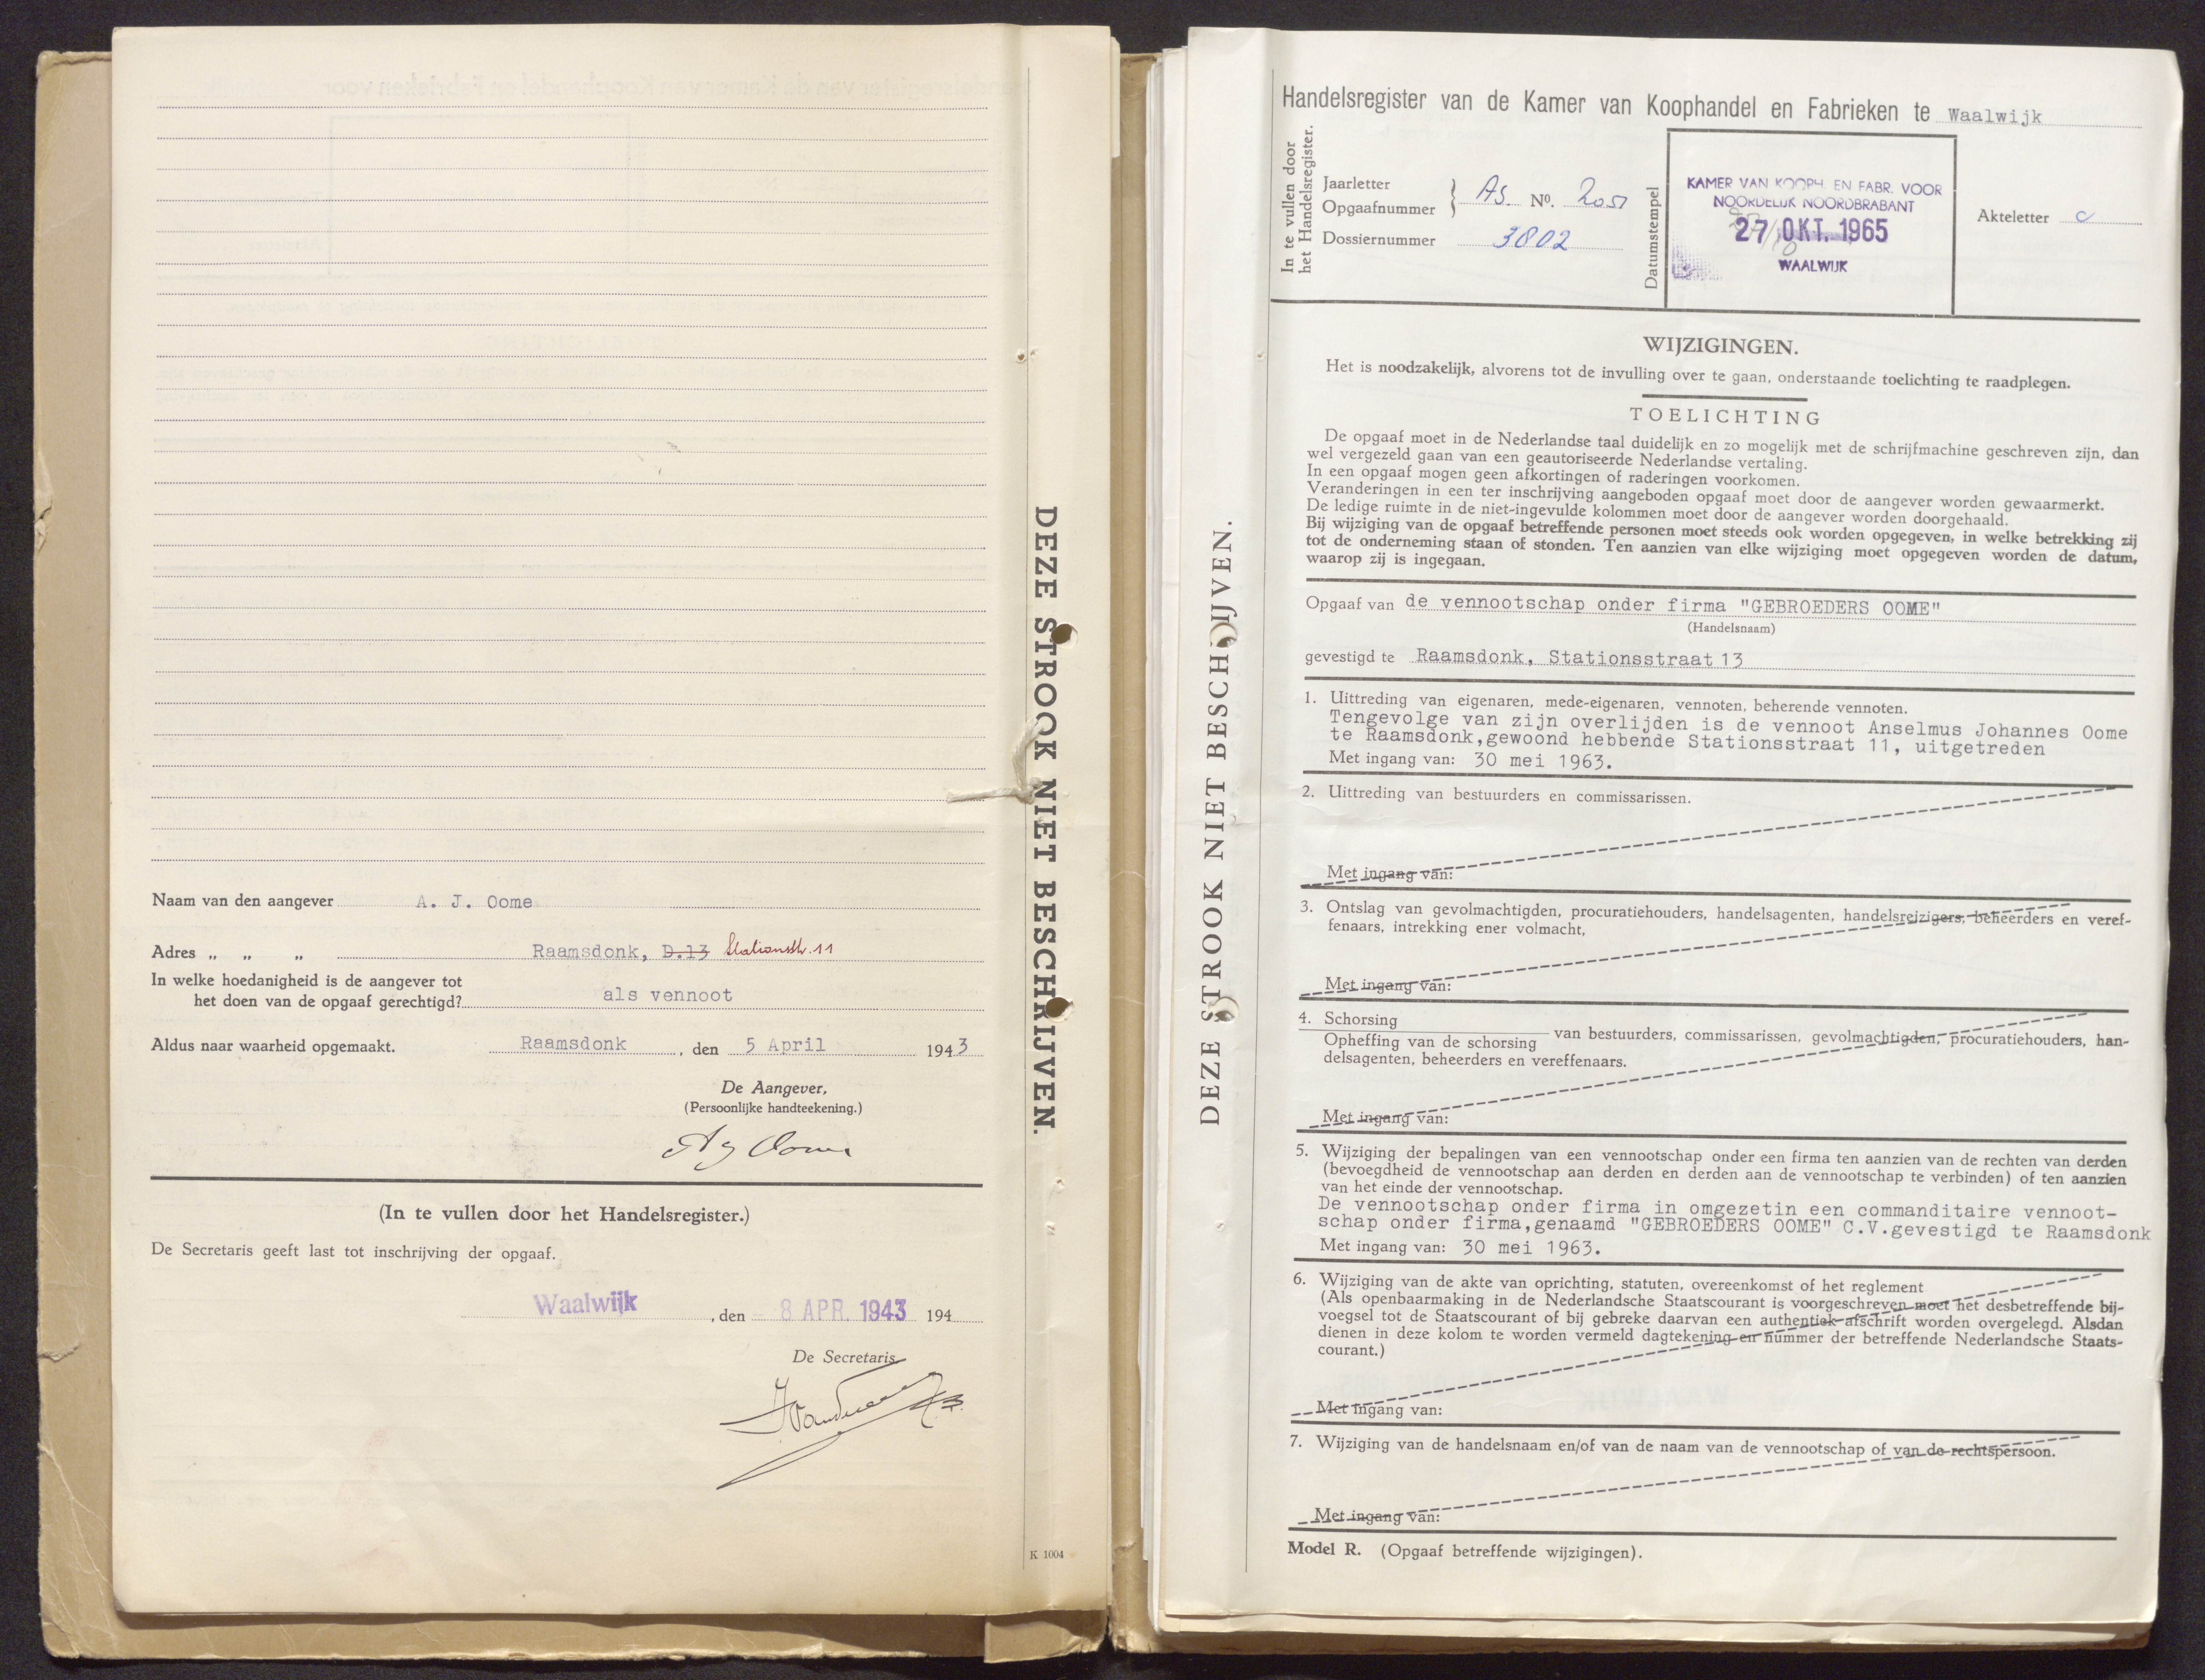 Naam van den aangever A. J. Oome
Adres „ „ „ Raamsdonk, D.13 Stationsstr. 11
In welke hoedanigheid is de aangever tot
het doen van de opgaaf gerechtigd? als vennoot
Aldus naar waarheid opgemaakt. Raamsdonk, den 5 April 1943
De Aangever,
(Persoonlijke handteekening.)
A J Oome
(In te vullen door het Handelsregister.)
De Secretaris geeft last tot inschrijving der opgaaf.
Waalwijk, den 8 APR. 1943 194
De Secretaris
K 1004
DEZE STROOK NIET BESCHRIJVEN.
DEZE STROOK NIET BESCHRIJVEN.
Handelsregister van de Kamer van Koophandel en Fabrieken te Waalwijk
In te vullen door
het Handelsregister.
Jaarletter
Opgaafnummer } AS. No. 2051
Dossiernummer 3802
Datumstempel
KAMER VAN KOOPH. EN FABR. VOOR
NOORDELIJK NOORDBRABANT
27 OKT. 1965
WAALWIJK
Akteletter c
WIJZIGINGEN.
Het is noodzakelijk, alvorens tot de invulling over te gaan, onderstaande toelichting te raadplegen.
TOELICHTING
De opgaaf moet in de Nederlandse taal duidelijk en zo mogelijk met de schrijfmachine geschreven zijn, dan
wel vergezeld gaan van een geautoriseerde Nederlandse vertaling.
In een opgaaf mogen geen afkortingen of raderingen voorkomen.
Veranderingen in een ter inschrijving aangeboden opgaaf moet door de aangever worden gewaarmerkt.
De ledige ruimte in de niet-ingevulde kolommen moet door de aangever worden doorgehaald.
Bij wijziging van de opgaaf betreffende personen moet steeds ook worden opgegeven, in welke betrekking zij
tot de onderneming staan of stonden. Ten aanzien van elke wijziging moet opgegeven worden de datum,
waarop zij is ingegaan.
Opgaaf van de vennootschap onder firma "GEBROEDERS OOME"
(Handelsnaam)
gevestigd te Raamsdonk, Stationsstraat 13
1. Uittreding van eigenaren, mede-eigenaren, vennoten, beherende vennoten.
Tengevolge van zijn overlijden is de vennoot Anselmus Johannes Oome
te Raamsdonk,gewoond hebbende Stationsstraat 11, uitgetreden
Met ingang van: 30 mei 1963.
2. Uittreding van bestuurders en commissarissen.
Met ingang van:
3. Ontslag van gevolmachtigden, procuratiehouders, handelsagenten, handelsreizigers, beheerders en veref-
fenaars, intrekking ener volmacht,
Met ingang van:
4. Schorsing
Opheffing van de schorsing van bestuurders, commissarissen, gevolmachtigden, procuratiehouders, han-
delsagenten, beheerders en vereffenaars.
Met ingang van:
5. Wijziging der bepalingen van een vennootschap onder een firma ten aanzien van de rechten van derden
(bevoegdheid de vennootschap aan derden en derden aan de vennootschap te verbinden) of ten aanzien
van het einde der vennootschap.
De vennootschap onder firma in omgezetin een commanditaire vennoot-
schap onder firma,genaamd "GEBROEDERS OOME" C.V.gevestigd te Raamsdonk
Met ingang van: 30 mei 1963.
6. Wijziging van de akte van oprichting, statuten, overeenkomst of het reglement
(Als openbaarmaking in de Nederlandsche Staatscourant is voorgeschreven moet het desbetreffende bij-
voegsel tot de Staatscourant of bij gebreke daarvan een authentiek afschrift worden overgelegd. Alsdan
dienen in deze kolom te worden vermeld dagtekening en nummer der betreffende Nederlandsche Staats-
courant.)
Met ingang van:
7. Wijziging van de handelsnaam en/of van de naam van de vennootschap of van de rechtspersoon.
Met ingang van:
Model R. (Opgaaf betreffende wijzigingen).